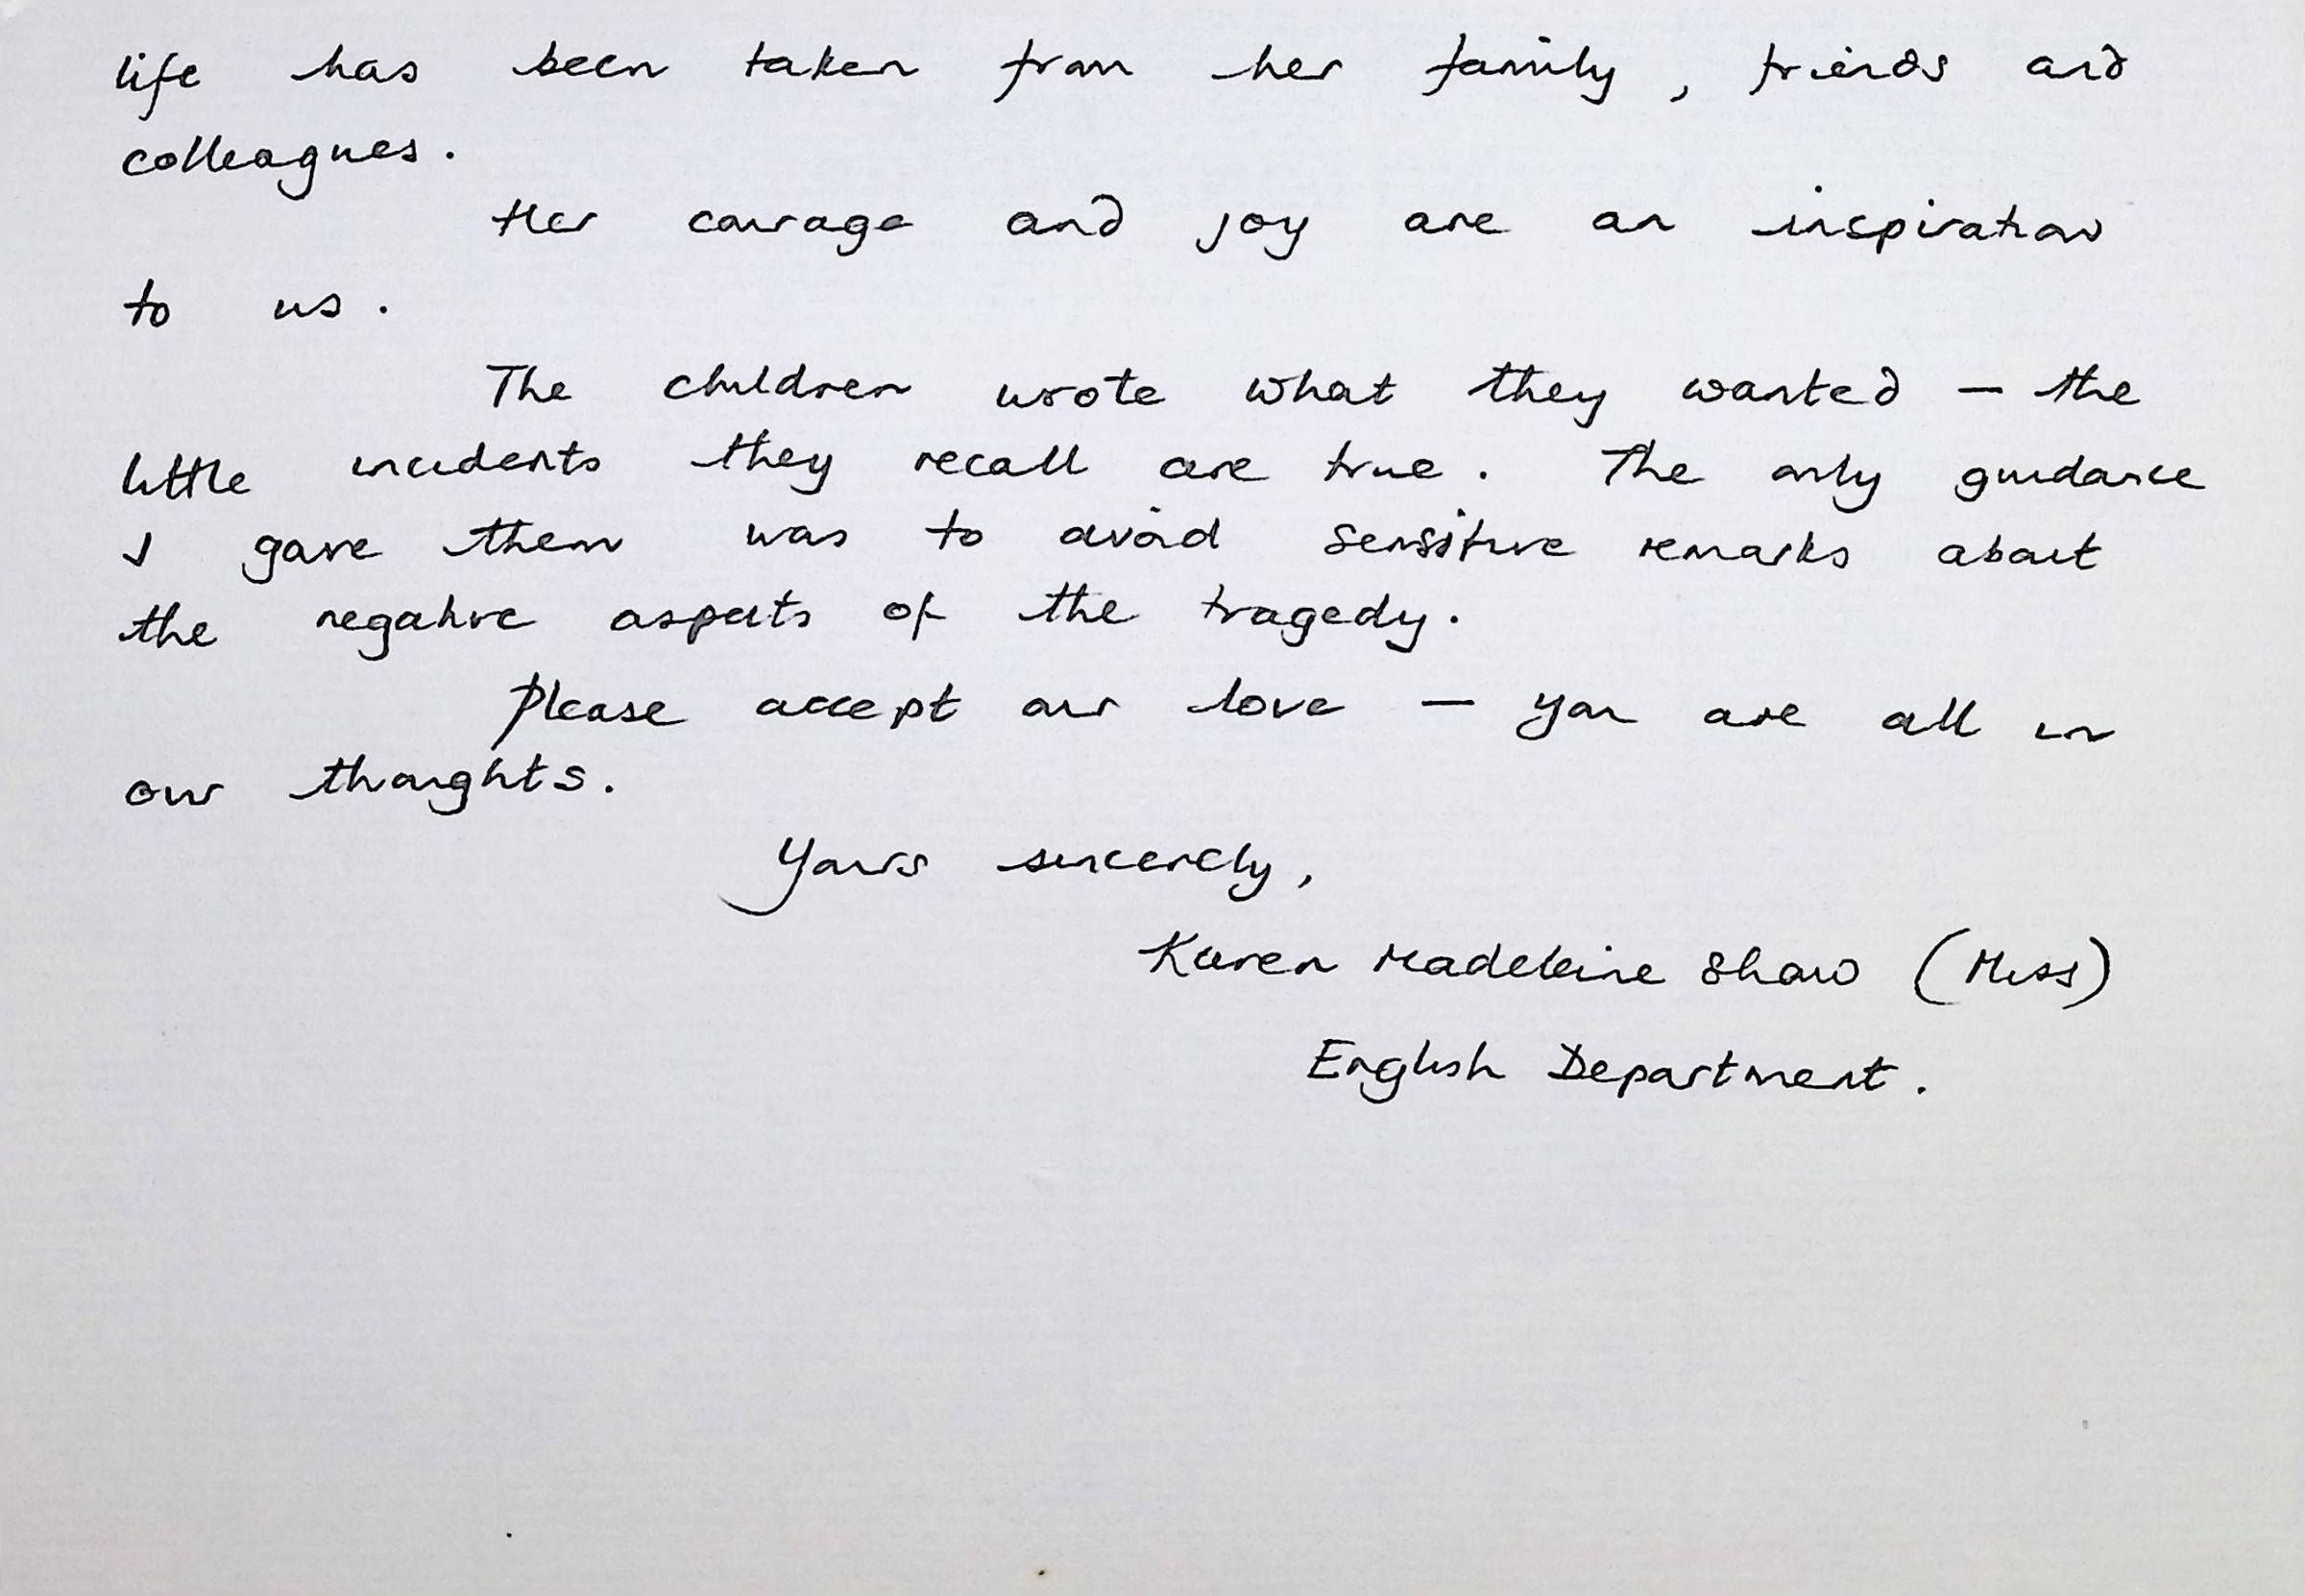 life has been taken from her family, friends and
colleagues.
Her courage and joy are an inspiration
to us.
The children wrote what they wanted – the
little incidents they recall are true. The only guidance
I gave them was to avoid sensitive remarks about
the negative aspects of the tragedy.
Please accept our love – you are all in
our thoughts.
Yours sincerely,
Karen Madeleine Shaw (Miss)
English Department.